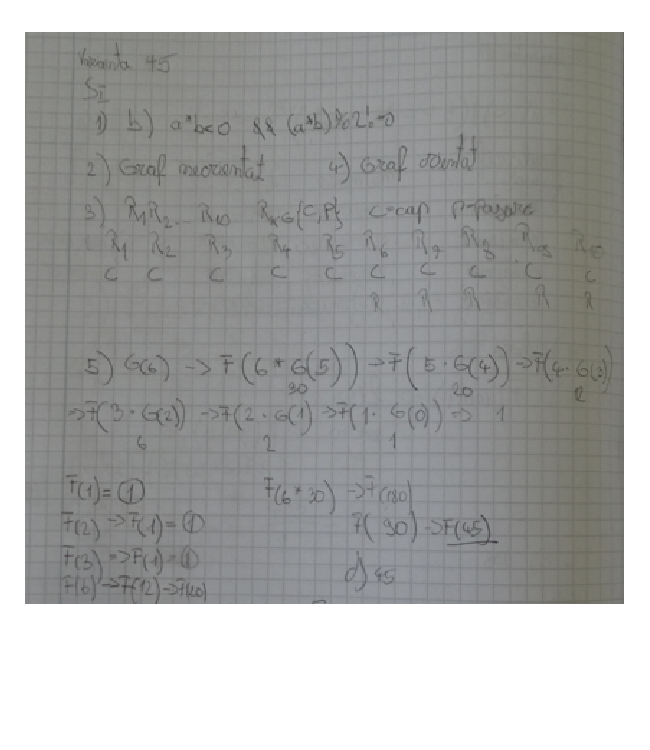 Varianta 45
SI
1) b) a*b<0 && (a*b)%2!=0
2) Graf neorientat 4) Graf orientat
3) R1 R2 ... R10 Rk∈{C,P} C-cap
R1 R2 R3 R4 R5 R6 R7 R8 R9 R10
C C C C C C C C C C
R R R R R
5) G(6) -> F(6*G(5)) -> F(5·G(4)) -> F(4·G(3))
30 20
=> F(3·G(2)) -> F(2·G(1) -> F(1·G(0)) => 1
6 2 1
F(1)= 1 F(6*30) -> F(180)
F(2) -> F(1)= 1 F(90) -> F(45)
F(3) => F(1)= 1
F(6) -> F(12) -> d) 45